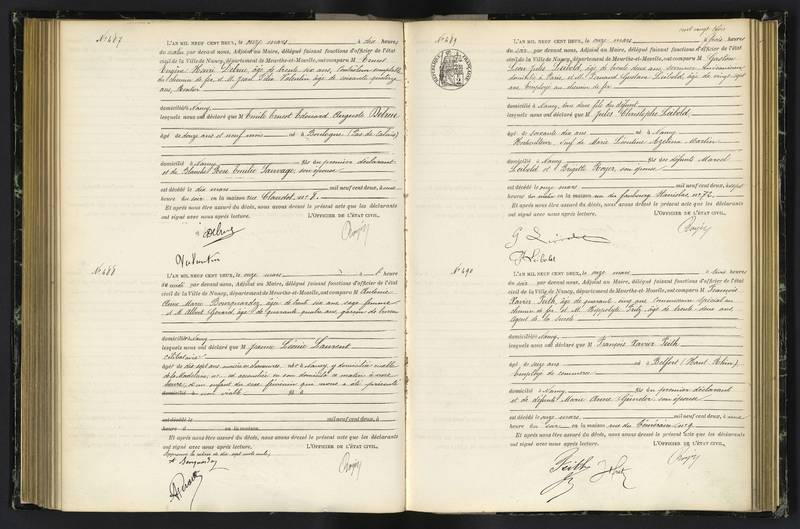 N° 487
L'AN MIL NEUF CENT DEUX, le onze mars à dix heures
du matin par devant nous, Adjoint au Maire, délégué faisant fonctions d'officier de l'état
civil de la Ville de Nancy, département de Meurthe-et-Moselle, ont comparu M Ernest
Eugène Henri Debrue, âgé de trente six ans, Contrôleur
du chemin de fer, et M. Jean Valentin âgé de soixante
ans, Rentier
domicilié à Nancy
lesquels nous ont déclaré que M Emile Ernest Edouard Auguste Debrue
âgé de douze ans et neuf mois né à Boulogne (Pas de Calais)
domicilié à Nancy fils du premier déclarant
et de Blanche Rose Emilie Sauvage son épouse
est décédé le dix mars mil neuf cent deux, à
heures du soir en la maison rue Claudot n° 7.
Et après nous être assuré du décès, nous avons dressé le présent acte que les déclarants
ont signé avec nous après lecture. L'OFFICIER DE L'ÉTAT CIVIL,
Valentin
N° 488
L'AN MIL NEUF CENT DEUX, le onze mars à heure
du par devant nous, Adjoint au Maire, délégué faisant fonctions d'officier de l'état
civil de la Ville de Nancy, département de Meurthe-et-Moselle, ont comparu M
Marie âgée de trente six ans sage femme
et M Albert Gérard, âgé de quarante quatre ans, garçon de bureau
domicilié à Nancy
lesquels nous ont déclaré que M Jeanne Léonie Laurent
célibataire
âgée de dix sept ans née à Nancy y domiciliée
est accouchée en son domicile ce matin à onze
heures, d'un enfant du sexe féminin qui nous a été présenté
domicilié à non viable
est décédé le mil neuf cent deux, à
heure d en la maison
Et après nous être assuré du décès, nous avons dressé le présent acte que les déclarants
ont signé avec nous après lecture. L'OFFICIER DE L'ÉTAT CIVIL,
N° 489
L'AN MIL NEUF CENT DEUX, le onze mars à trois heures
du soir par devant nous, Adjoint au Maire, délégué faisant fonctions d'officier de l'état
civil de la Ville de Nancy, département de Meurthe-et-Moselle, ont comparu M Gaston
Léon Jules Leibold, âgé de trente deux ans,
domicilié à Paris, et M. Gustave Leibold, âgé de vingt sept
ans Employé au chemin de fer
domicilié à Nancy, tous deux fils du défunt
lesquels nous ont déclaré que M Jules Christophe Leibold
âgé de soixante dix ans né à Nancy
Horticulteur, veuf de Marie Léontine Azelina Martin
domicilié à Nancy fils des défunts Marcel
Leibold et Brigitte Hoyer, son épouse
est décédé le onze mars mil neuf cent deux, à sept
heures du matin en la maison rue du faubourg Stanislas n° 72.
Et après nous être assuré du décès, nous avons dressé le présent acte que les déclarants
ont signé avec nous après lecture. L'OFFICIER DE L'ÉTAT CIVIL,
N° 490
L'AN MIL NEUF CENT DEUX, le onze mars à trois heures
du soir par devant nous, Adjoint au Maire, délégué faisant fonctions d'officier de l'état
civil de la Ville de Nancy, département de Meurthe-et-Moselle, ont comparu M François
Xavier Feith, âgé de quarante cinq ans Commissaire spécial au
chemin de fer, et M. Hippolyte âgé de trente deux ans,
agent de la sûreté
domicilié à Nancy,
lesquels nous ont déclaré que M François Xavier Feith
âgé de seize ans né à Belfort (Haut Rhin)
Employé de commerce
domicilié à Nancy fils du premier déclarant
et de défunte Marie Anne son épouse
est décédé le onze mars mil neuf cent deux, à une
heure du soir en la maison rue du Téméraire n° 9.
Et après nous être assuré du décès, nous avons dressé le présent acte que les déclarants
ont signé avec nous après lecture. L'OFFICIER DE L'ÉTAT CIVIL,
Feith